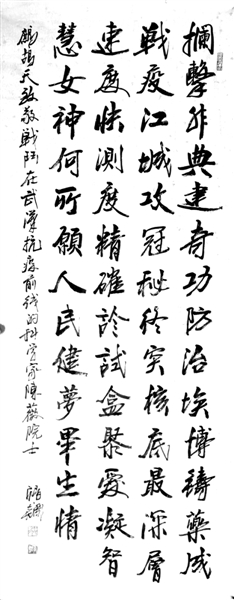 攔擊非典建奇功防治埃博鑄藥成
戰疫江城攻冠秘終究核底最深層
速度快測度精確診試盒聚愛凝智
慧女神何所願人民健夢畢生情
鷓鴣天致敬戰鬥在武漢抗疫前綫的科學家陳薇院士